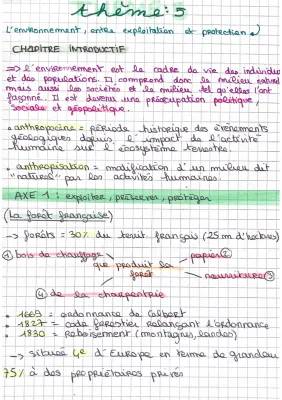 thème : 5
L'environnement, entre exploitation et protection
CHAPITRE INTRODUCTIF
=> l'environnement est le cadre de vie des individus
et des populations. Il comprend donc le milieu naturel
mais aussi les sociétés et le milieu tel qu'elles l'ont
façonné. Il est devenu une préoccupation politique,
sociales et géopolitique.
• anthropocène = période historique des évènements
géologiques depuis l'impact de l'activité
humaine sur l'écosystème terrestre.
• anthropisation = modification d'un milieu dit
"naturel" par les activités humaines.
AXE 1 : exploiter, préserver, protéger
(La forêt française)
-> forêts = 30% du territ français (25 m d'hectares)
① bois de chauffage papier ②
que produit la forêt
nourritures ③
④ de la charpenterie
• 1669 = ordonnance de Colbert
• 1827 = code forestier relançant l'ordonnance
• 1830 = reboisement (montagnes, landes)
-> située 4e d'Europe en terme de grandeur
75% à des propriétaires privés